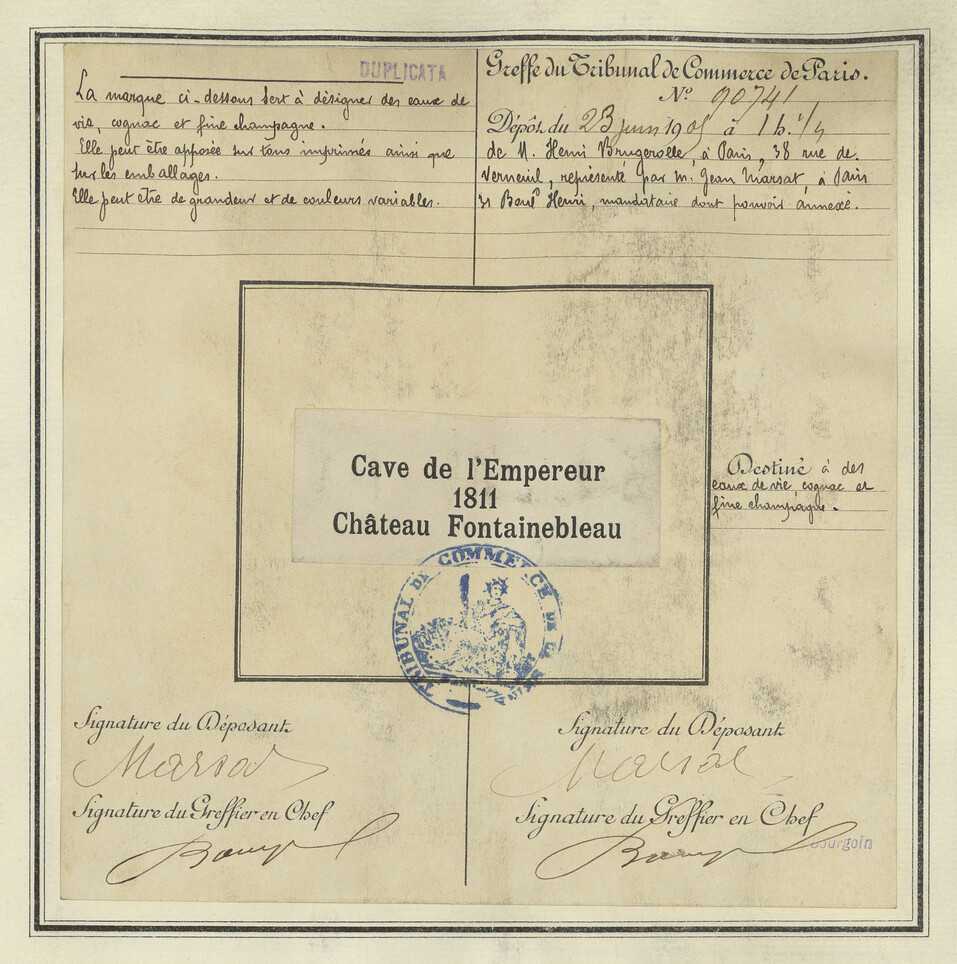 DUPLICATA
La marque ci-dessous sert à désigner des eaux de
vie, cognac et fine champagne.
Elle peut être apposée sur tous imprimés ainsi que
sur les emballages.
Elle peut être de grandeur et de couleurs variables.
Greffe du Tribunal de Commerce de Paris.
N° 90741
Dépôt du 23 juin 1905 à 1 h. 1/4
de M. Henri Brugerolle, à Paris, 38 rue de
Verneuil, représenté par M. Jean Marsat, à Paris
31 Boul^d Henri, mandataire dont pouvoir annexé.
Cave de l'Empereur
1811
Château Fontainebleau
Destiné à des
eaux de vie, cognac et
fine champagne.
TRIBUNAL DE COMMERCE DE LA
Signature du Déposant
Marsat
Signature du Greffier en Chef
Signature du Déposant
Marsat
Signature du Greffier en Chef
Bourgoin